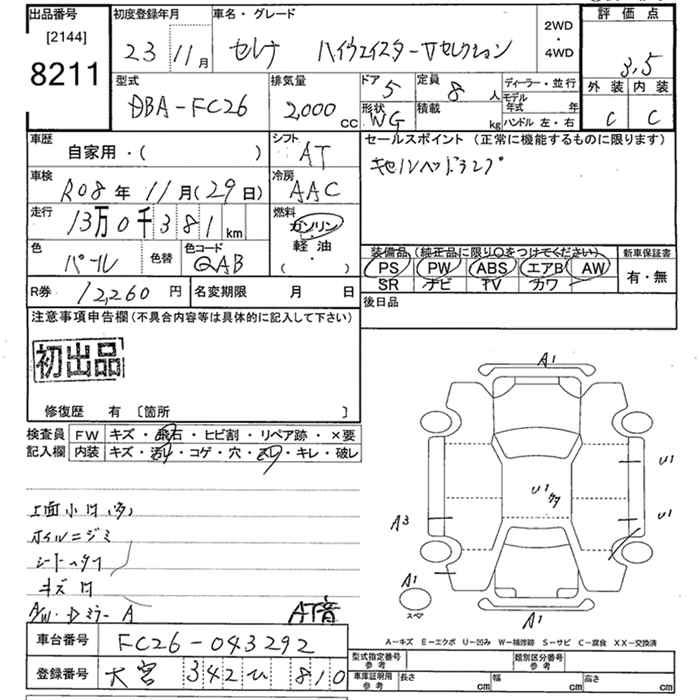 出品番号 [2144] 8211
初度登録年月 23 11月
車名・グレード セレナ ハイウェイスターVセレクション
2WD・4WD
評価点 3.5
外装 C 内装 C
型式 DBA-FC26
排気量 2,000 CC
ドア 5 形状 WG
定員 8人 積載 kg
ディーラー・並行
モデル年式 年
ハンドル 左・右
車歴 自家用・( )
シフト AT
セールスポイント (正常に機能するものに限ります)
キセノンヘッドランプ
車検 R08年 11月(29日)
冷房 AAC
走行 13万0千381km
燃料 ガソリン 軽油 ( ・ )
色 パール 色替 色コード QAB
装備品(純正品に限り○をつけてください) 新車保証書
PS PW ABS エアB AW 有・無
SR ナビ TV カワ
R券 12,260円 名変期限 月 日
後日品
注意事項申告欄(不具合内容等は具体的に記入して下さい)
初出品
修復歴 有 〔箇所 〕
検査員 FW キズ・飛石・ヒビ割・リペア跡・×要
記入欄 内装 キズ・汚れ・コゲ・穴・スレ・キレ・破レ
A1
U1
U1
U1
A3
A1
スペア
A1
ホイルニジミ
キズ
AW・Dミラー A
AT音
A-キズ E-エクボ U-凹み W-補修跡 S-サビ C-腐食 XX-交換済
車台番号 FC26-043292
登録番号 大宮 342 ひ 810
型式指定番号 参考 類別区分番号 参考
車庫証明用 参考 長さ cm 幅 cm 高さ cm